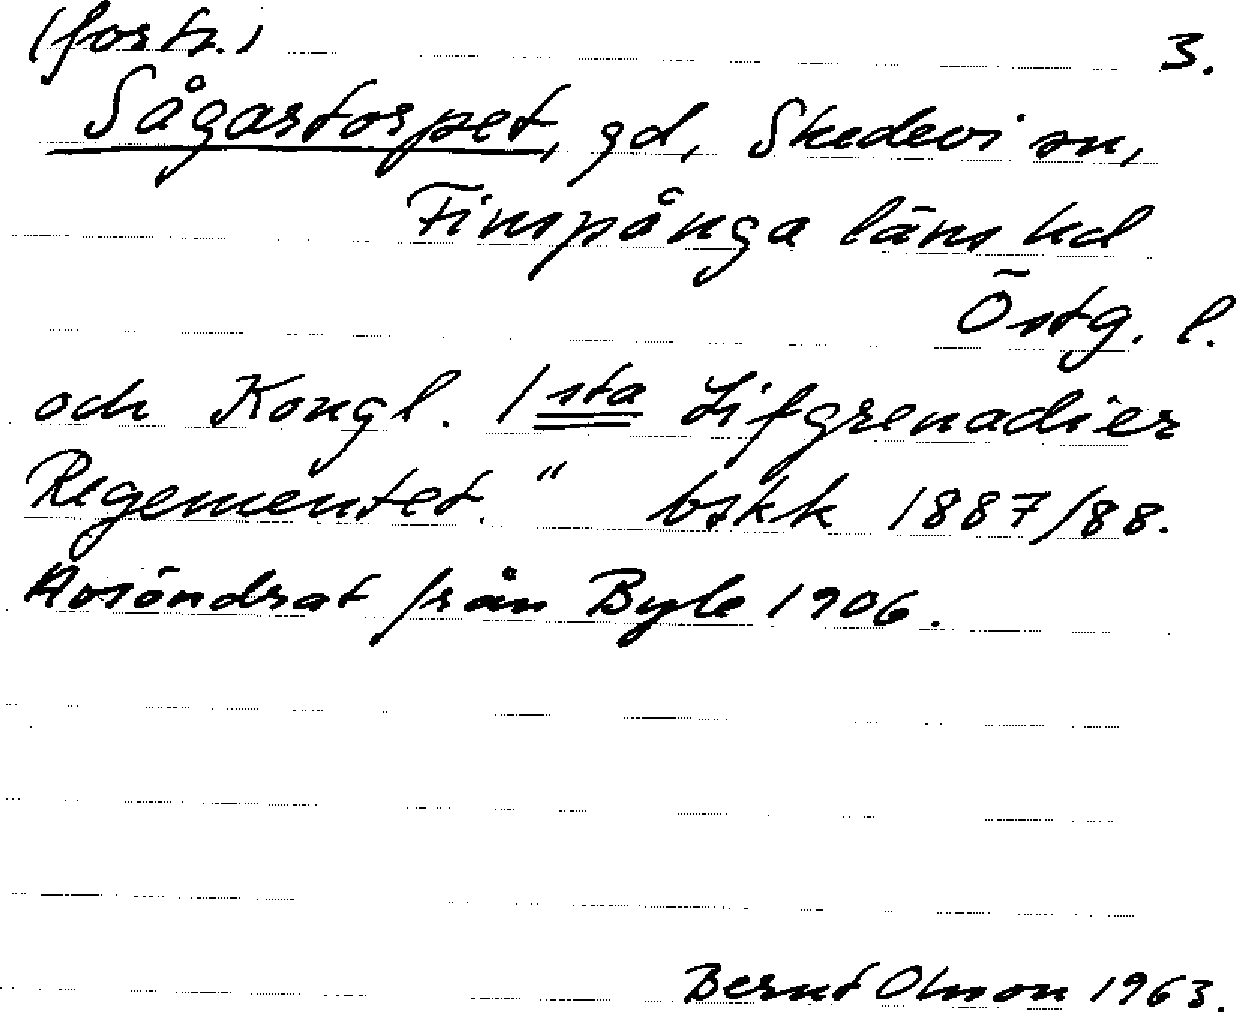 (forts.) 3.
Sågarstorpet, gd, Skedevi sn,
Finspånga läns hd
Östg. l.
och Kongl. 1sta Lifgrenadier
Regementet." bskk 1887/88.
Avsöndrat från Byle 1906.
Bernt Olsson 1963.